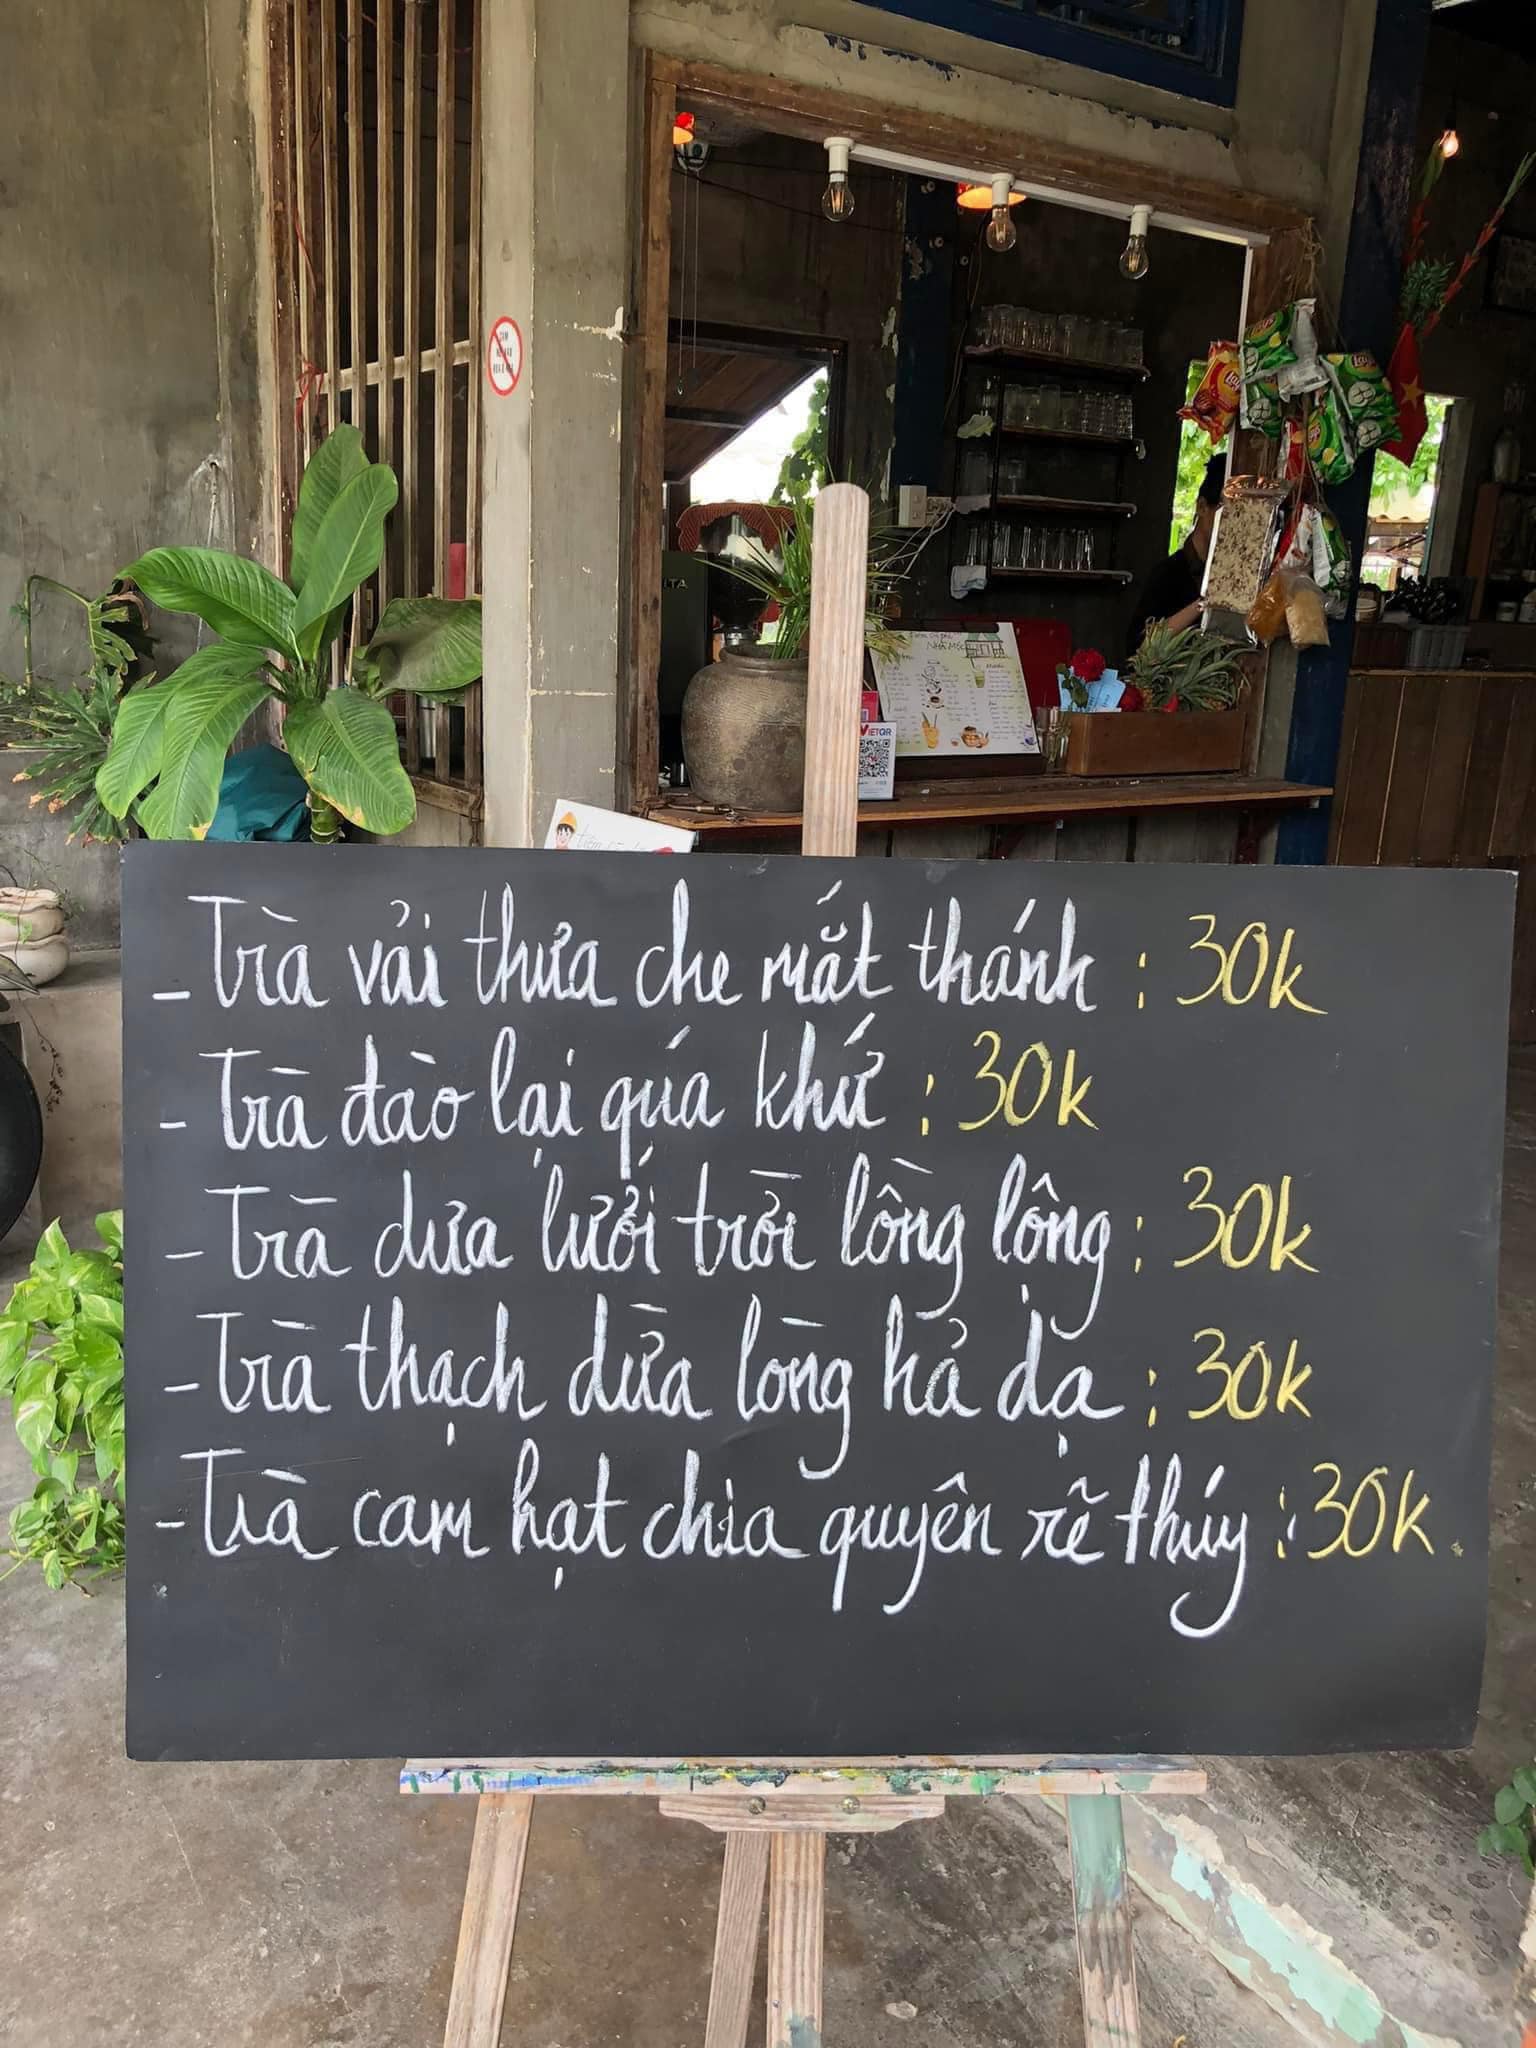 VIETQR
NHÀ MÓC
- Trà vải thưa che mắt thánh : 30k
- Trà đào lại quá khứ : 30k
- Trà dưa lưới trời lồng lộng : 30k
- Trà thạch dừa lòng hả dạ : 30k
- Trà cam hạt chia quyên rẽ thúy : 30k.